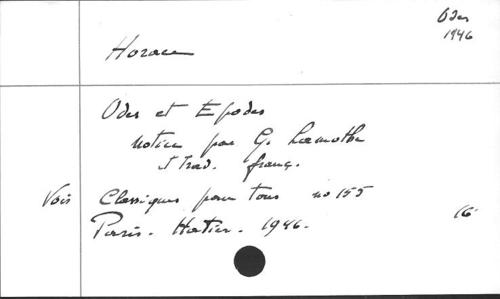 Odes
1946
Horace
Odes et Epodes
notice par G. Lamothe
trad. franç.
Vois Classiques pour tous no 155
Paris. Hatier. 1946.
16